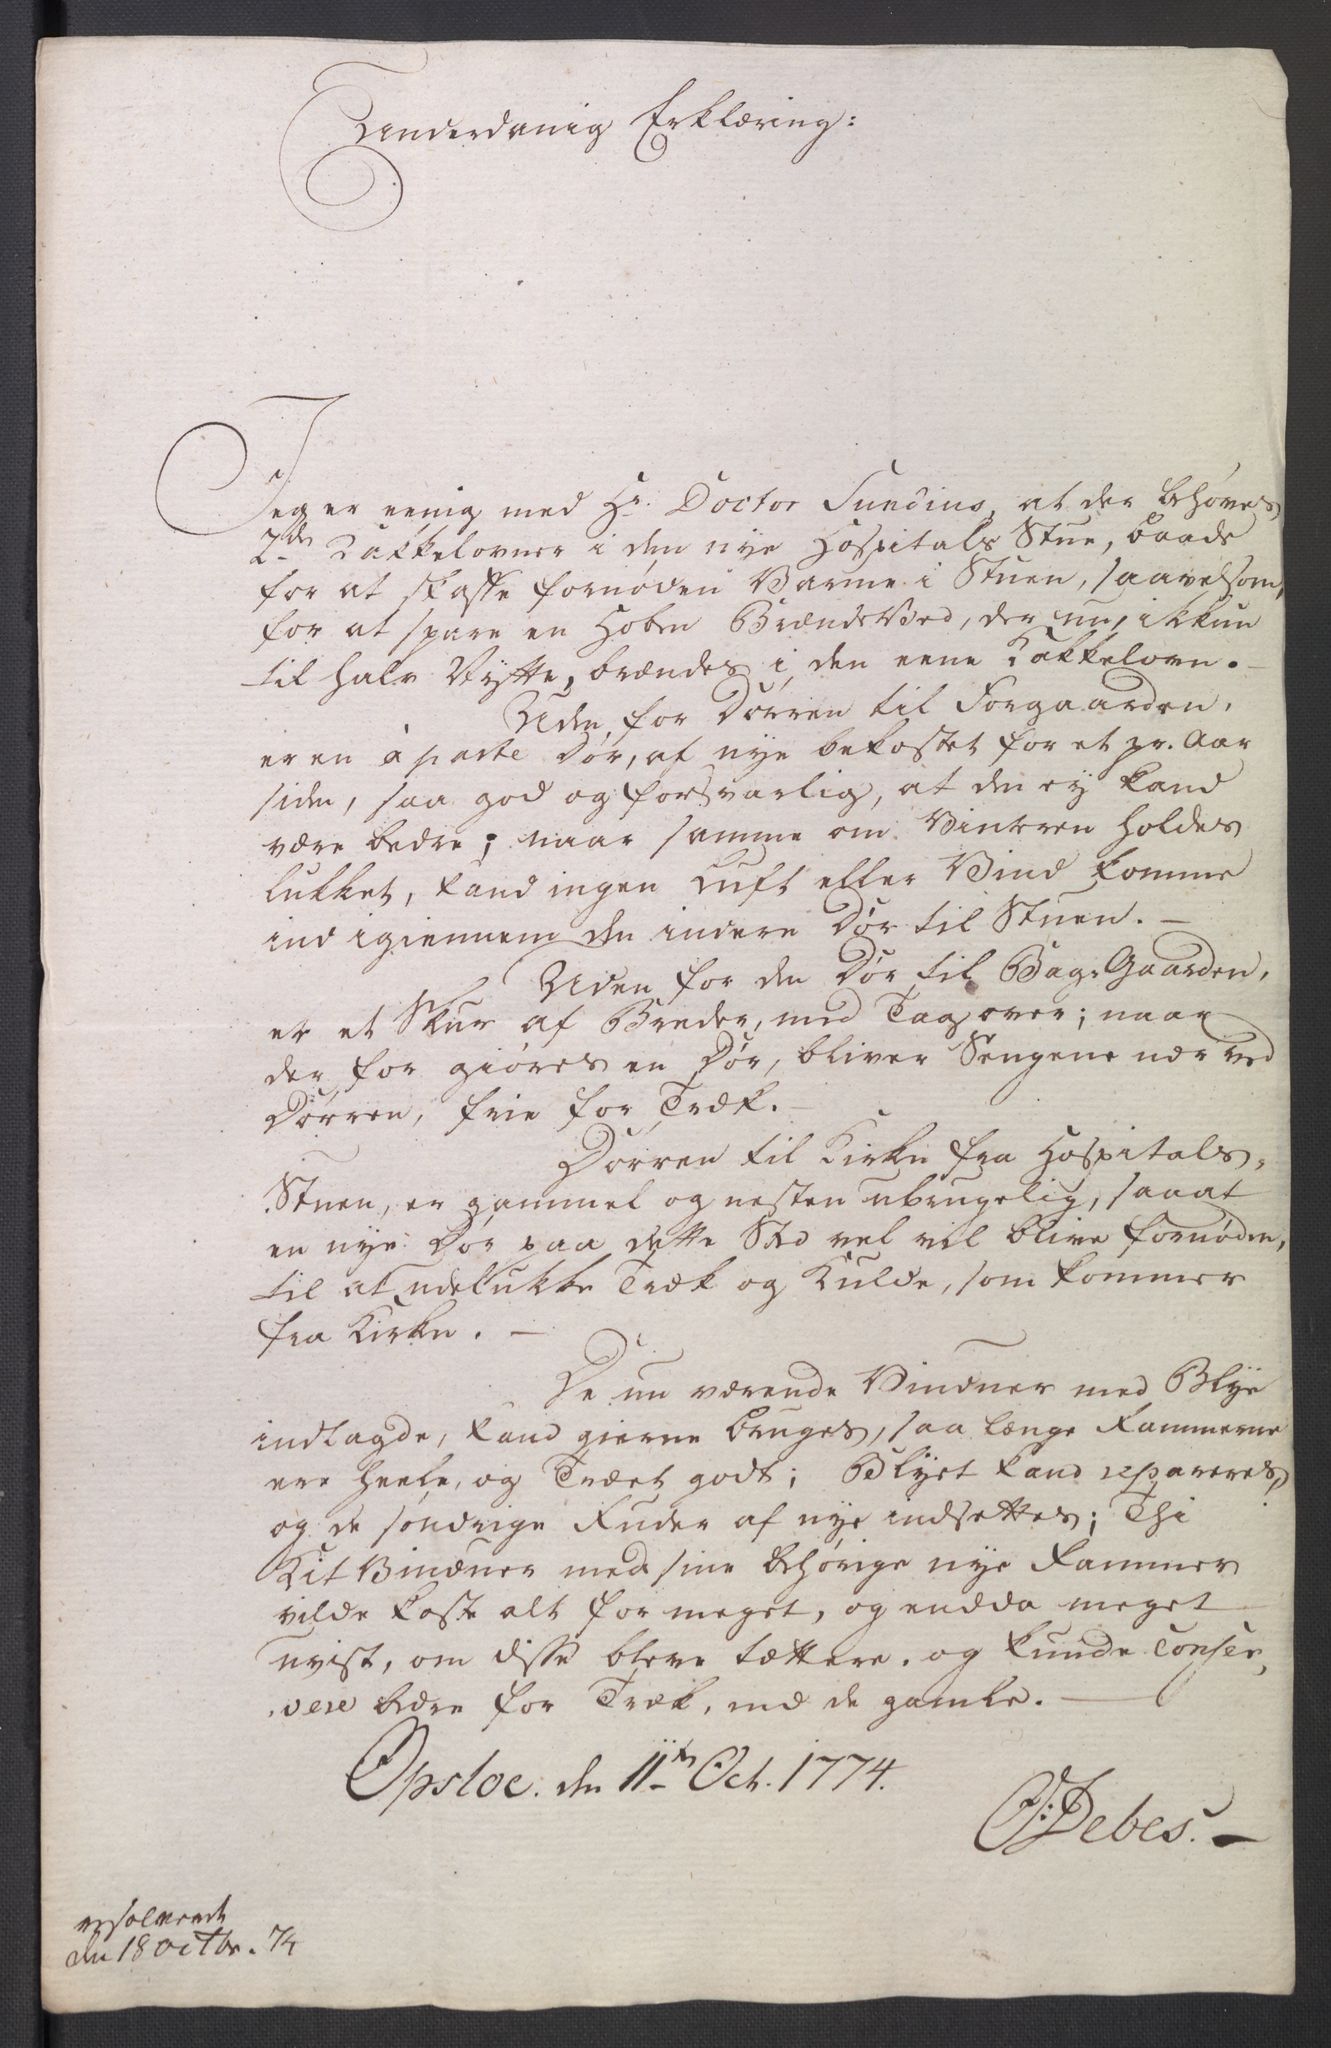 Underdanig Erklæring:
Jeg er eenig med Hr. Doctor Sundius, at der behøves
2de Kakkelovner i den nye Hospitals Stue, baade
for at skaffe fornøden Varme i Stuen, saavelsom,
for at spare en Hoben BrændeVed, der nu, ikkun
til halv Nytte, brændes i den eene Kakkelovn. -
Uden for Dørren til Forgaarden,
er en à parte Dør, af nye bekostet for et pr. Aar
siden, saa god og forsvarlig, at den ey kand
være bedre; naar samme om Vinteren holdes
lukket, kand ingen Luft eller Vind komme
ind igiennem den indere Dør til Stuen. -
Uden for den Dør til Bag-Gaarden,
er et Skur af Breder, med Tag over; naar
der for giöres en Dør, bliver Sengene nær ved
Dørren, frie for Træk. -
Dørren til Kirken fra Hospitals-
Stuen, er gammel og nesten ubrugelig, saa at
en nye Dör paa dette Sted vel vil blive fornøden,
til at udelukke Træk og Kulde, som kommer
fra Kirken. -
De nu værende Vinduer med Blye
indlagde, kand gierne bruges, saa længe Rammerne
ere heele, og Træet godt; Blyet kand repareres,
og de søndrige Ruder af nye indsettes; Thi
Kit Vinduer med sine behørige nye Rammer
vilde koste alt for meget, og endda meget
uvist, om disse bleve tættere, og kunde conser-
vere bedre for Træk, end de gamle. -
Opsloe. den 11te Oct. 1774.
O: Debes. -
resolveret
den 18 octbr. 74